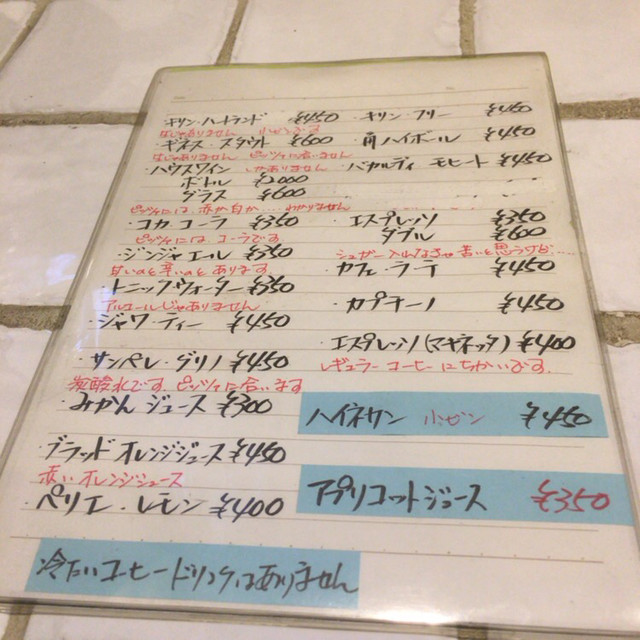 ・キリン・ハートランド ¥450
生じゃありません 小ビンです
・ギネス・スタウト ¥600
生じゃありません ピッツァに合いません
・ハウスワイン
ボトル ¥2000
グラス ¥600
ピッツァには、赤か白か
・コカ・コーラ ¥350
ピッツァには、コーラです
・ジンジャエール ¥350
甘いのと辛いのと あります
・トニックウォーター ¥350
アルコールじゃありません
・ジャワ・ティー ¥450
・サンペレ・グリノ ¥450
炭酸水です。ピッツァに合います
・みかんジュース ¥300
・ブラッドオレンジジュース ¥450
赤いオレンジジュース
・ペリエ・レモン ¥400
冷たいコーヒードリンクはありません
・キリン・フリー ¥450
・角ハイボール ¥450
・バカルディ モヒート ¥450
・エスプレッソ ¥350
ダブル ¥600
シュガー入れなきゃ苦いと思うけど....
・カフェ・ラテ ¥450
・カプチーノ ¥450
・エスプレッソ(マキネッタ) ¥400
レギュラーコーヒーにちかいです。
ハイネケン 小ビン ¥450
アプリコットジュース ¥350